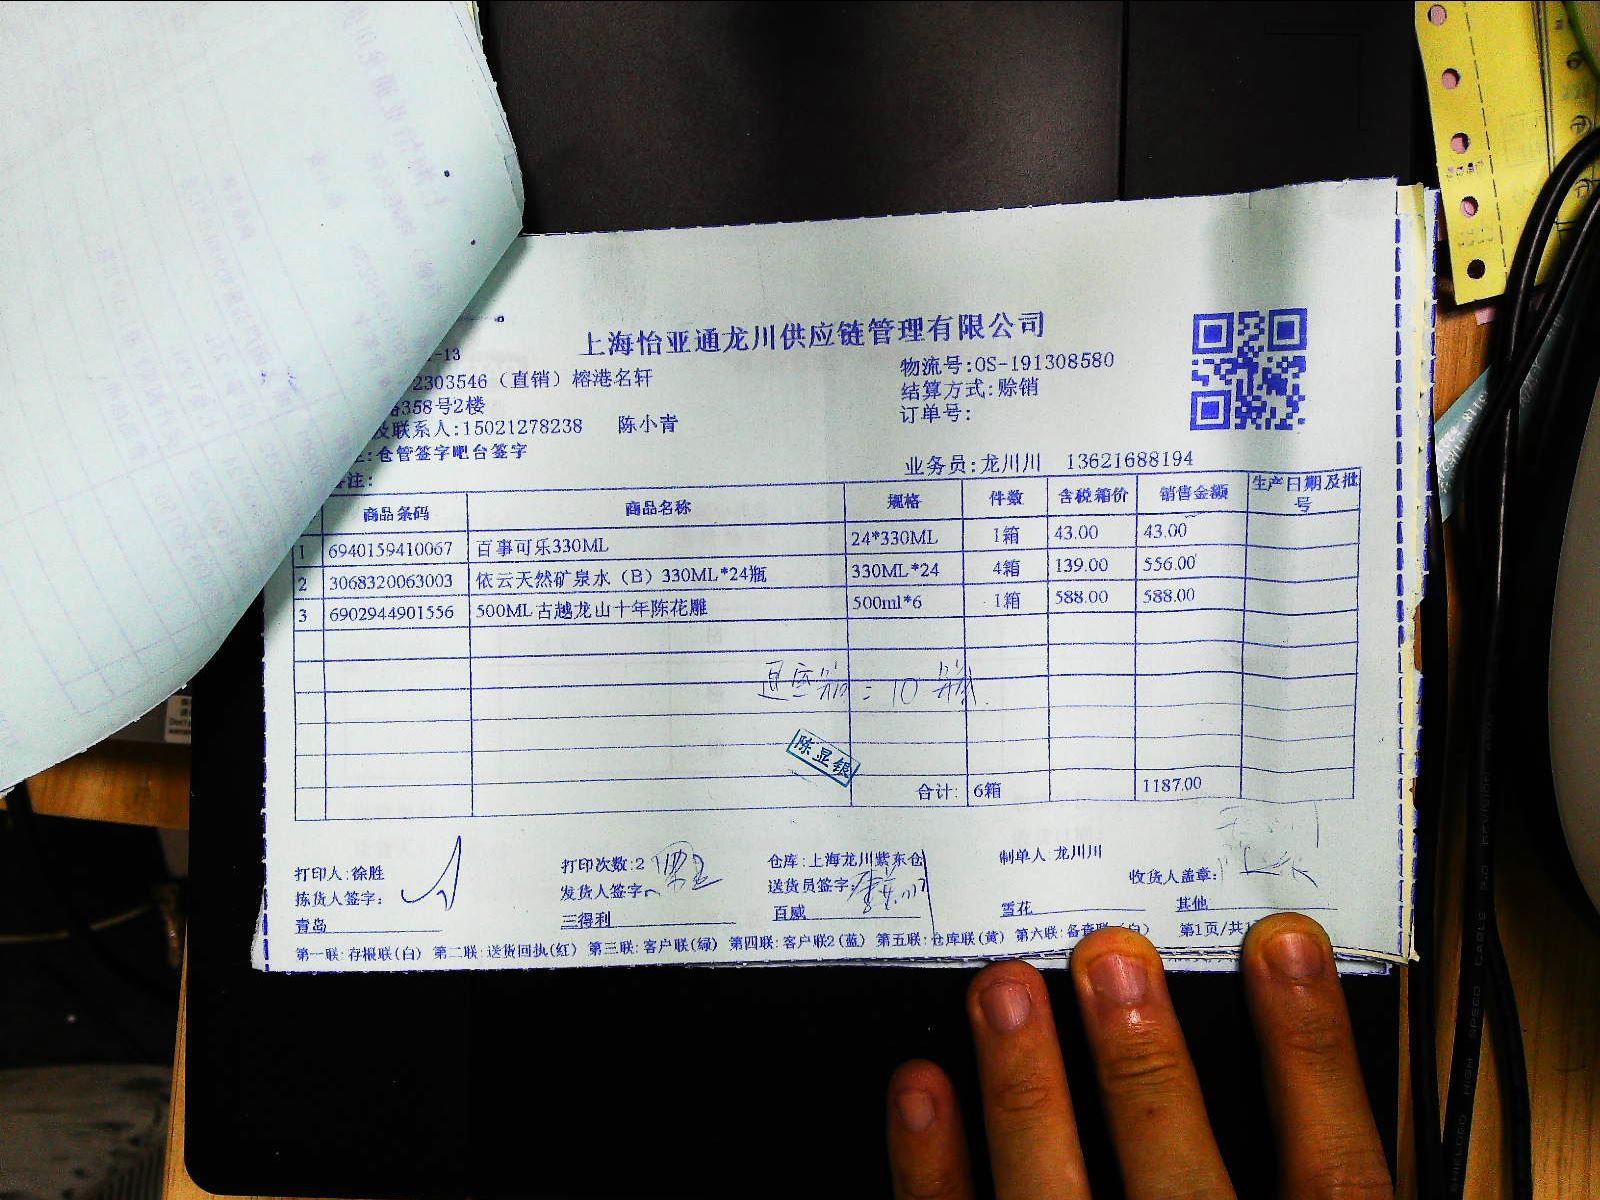 上海怡亚通龙川供应链管理有限公司
-13
2303546（直销）榕港名轩
358号2楼
及联系人:15021278238 陈小青
:仓管签字吧台签字
备注:
物流号:OS-191308580
结算方式:赊销
订单号:
业务员:龙川川 13621688194
商品条码 商品名称 规格 件数 含税箱价 销售金额 生产日期及批号
1 6940159410067 百事可乐330ML 24*330ML 1箱 43.00 43.00
2 3068320063003 依云天然矿泉水（B）330ML*24瓶 330ML*24 4箱 139.00 556.00
3 6902944901556 500ML古越龙山十年陈花雕 500ml*6 1箱 588.00 588.00
退空箱 = 10 箱.
陈显银
合计: 6箱 1187.00
打印人:徐胜 打印次数:2 仓库:上海龙川紫东仓 制单人 龙川川
拣货人签字: 发货人签字: 送货员签字: 收货人盖章:
青岛 三得利 百威 雪花 其他
第一联:存根联(白) 第二联:送货回执(红) 第三联:客户联(绿) 第四联:客户联2(蓝) 第五联:仓库联(黄) 第六联:备查联(白) 第1页/共1